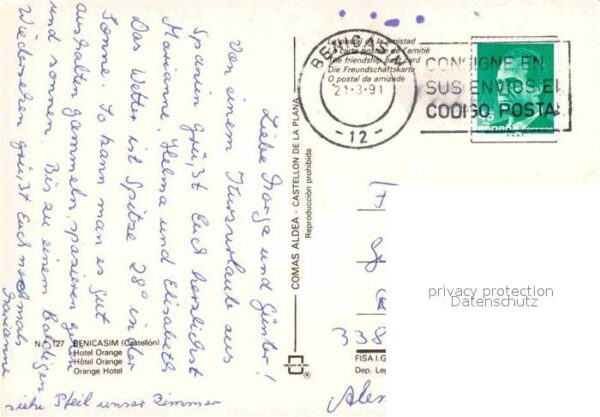 Liebe Marga und Günter!
Von einem Kurzurlaub aus
Spanien grüßt Euch herzlichst
Marianne, Helma und Elisabeth
Das Wetter ist Spitze 28° in der
Sonne. So kann man es gut
aushalten, gammeln, spazieren gehen
und sonnen. Bis zu einem baldigen
Wiedersehen grüßt Euch nochmals
Marianne
siehe Pfeil unser Zimmer
N.º 127 BENICASIM (Castellón)
Hotel Orange
Hôtel Orange
Orange Hotel
COMAS ALDEA - CASTELLON DE LA PLANA
Reproducción prohibida
La postal de la amistad
La carte postale de l'amitié
The friendship postcard
Die Freundschaftskarte
O postal da amizade
BENICASIM
21-3-91
-12-
CONSIGNE EN
SUS ENVIOS EL
CODIGO POSTAL
privacy protection
Datenschutz
338
FISA I.G.
Dep. Leg